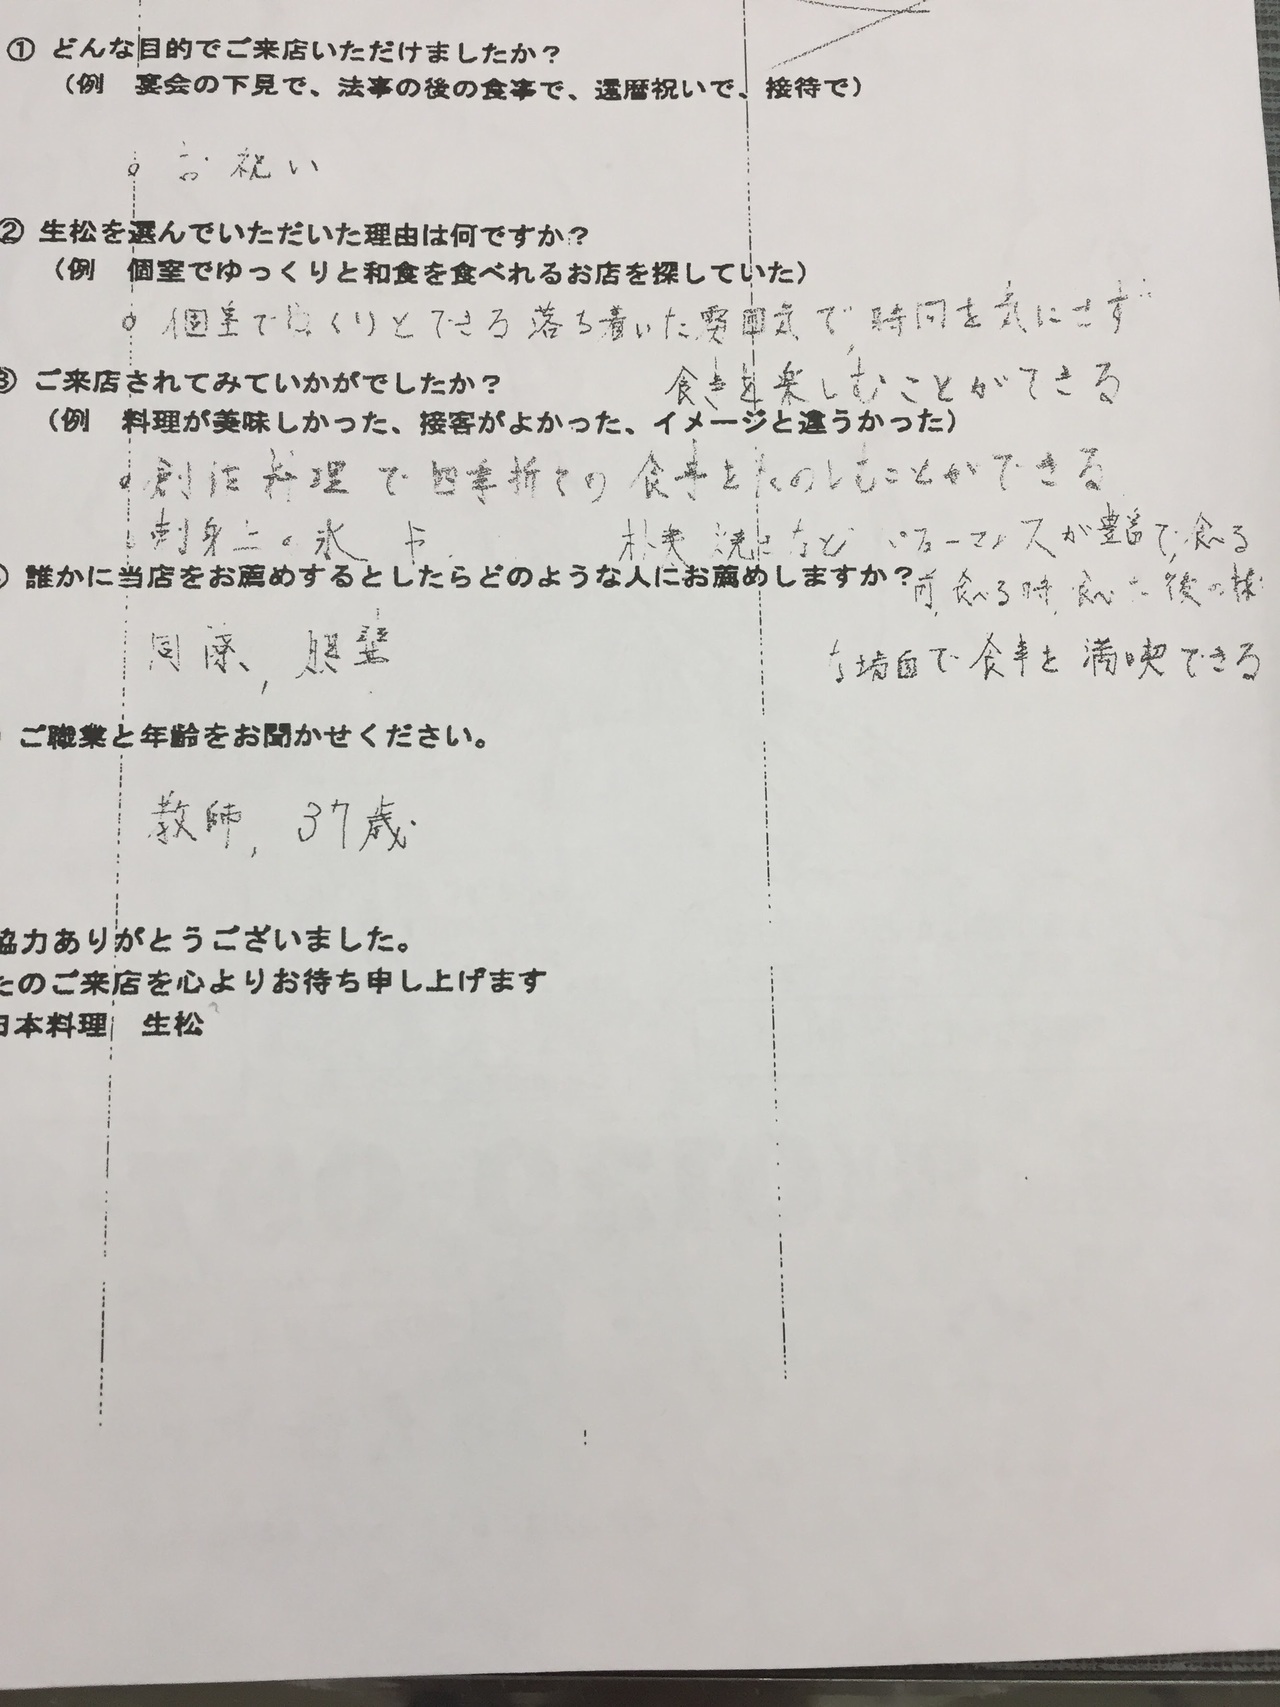 ① どんな目的でご来店いただけましたか？
（例　宴会の下見で、法事の後の食事で、還暦祝いで、接待で）
お祝い
② 生松を選んでいただいた理由は何ですか？
（例　個室でゆっくりと和食を食べれるお店を探していた）
個室でゆっくりとできる落ち着いた雰囲気で、時間を気にせず
食事を楽しむことができる
③ ご来店されてみていかがでしたか？
（例　料理が美味しかった、接客がよかった、イメージと違うかった）
創作料理で四季折々の食事をたのしむことができる
刺身上の氷や 朴葉焼きなど パフォーマンスが豊富で、食べる
前、食べる時、食べた後の様々
な場面で食事を満喫できる
誰かに当店をお薦めするとしたらどのような人にお薦めしますか？
同僚、親輩
ご職業と年齢をお聞かせください。
教師、37歳
協力ありがとうございました。
たのご来店を心よりお待ち申し上げます
日本料理　生松